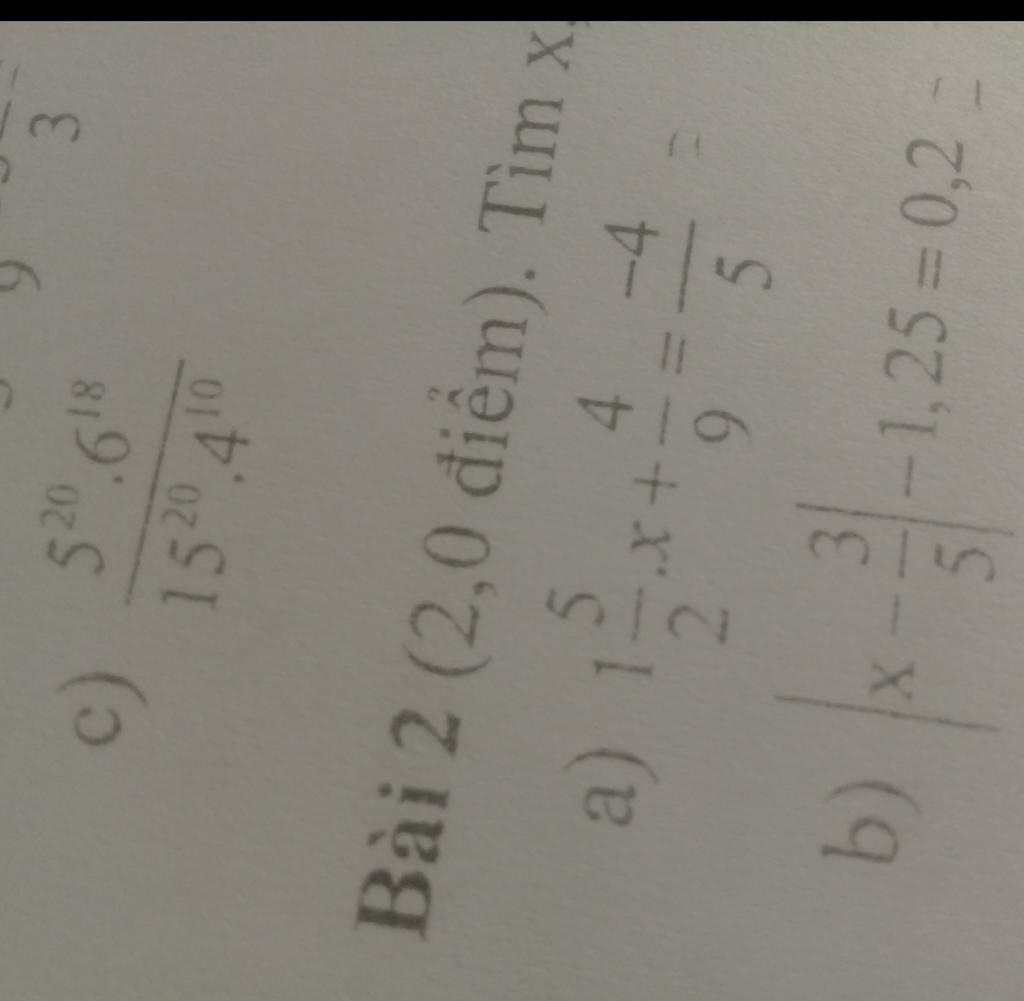 9 3
c) \frac{5^{20}.6^{18}}{15^{20}.4^{10}}
Bài 2 (2,0 điểm). Tìm x,
a) 1\frac{5}{2}.x + \frac{4}{9} = \frac{-4}{5}
b) |x - \frac{3}{5}| - 1,25 = 0,2